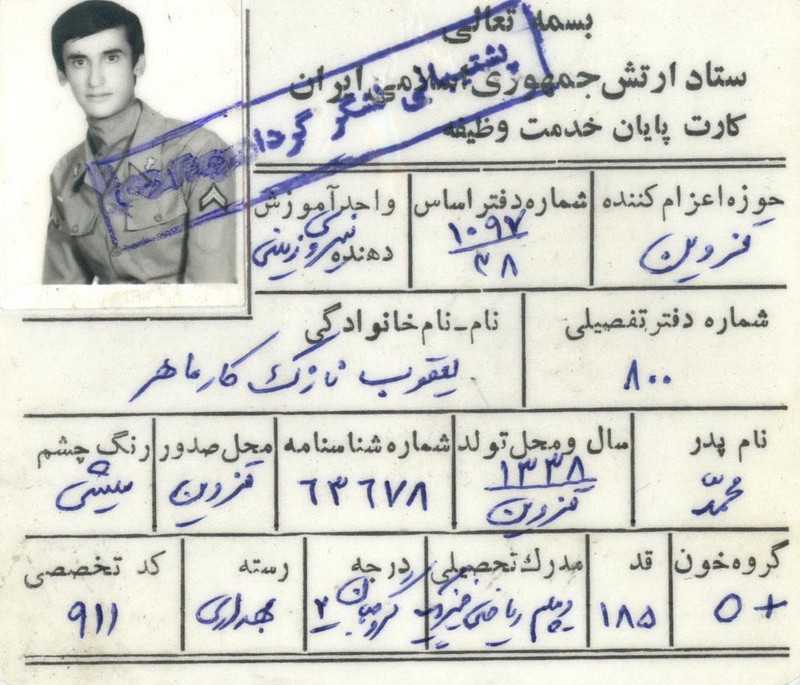 بسمه تعالی
ستاد ارتش جمهوری اسلامی ایران
کارت پایان خدمت وظیفه
پشتیبانی لشگر گردان
حوزه اعزام کننده
قزوین
شماره دفتر اساس
۱۰۹۷
۳۸
واحد آموزش دهنده
نیروی زمینی
شماره دفتر تفصیلی
۸۰۰
نام-نام خانوادگی
یعقوب نازک کار ماهر
نام پدر
محمد
سال و محل تولد
۱۳۳۸
قزوین
شماره شناسنامه
۶۳۶۷۸
محل صدور
قزوین
رنگ چشم
میشی
گروه خون
O +
قد
۱۸۵
مدرک تحصیلی
دیپلم ریاضی فیزیک
درجه
گروهبان ۲
رسته
بهداری
کد تخصصی
۹۱۱